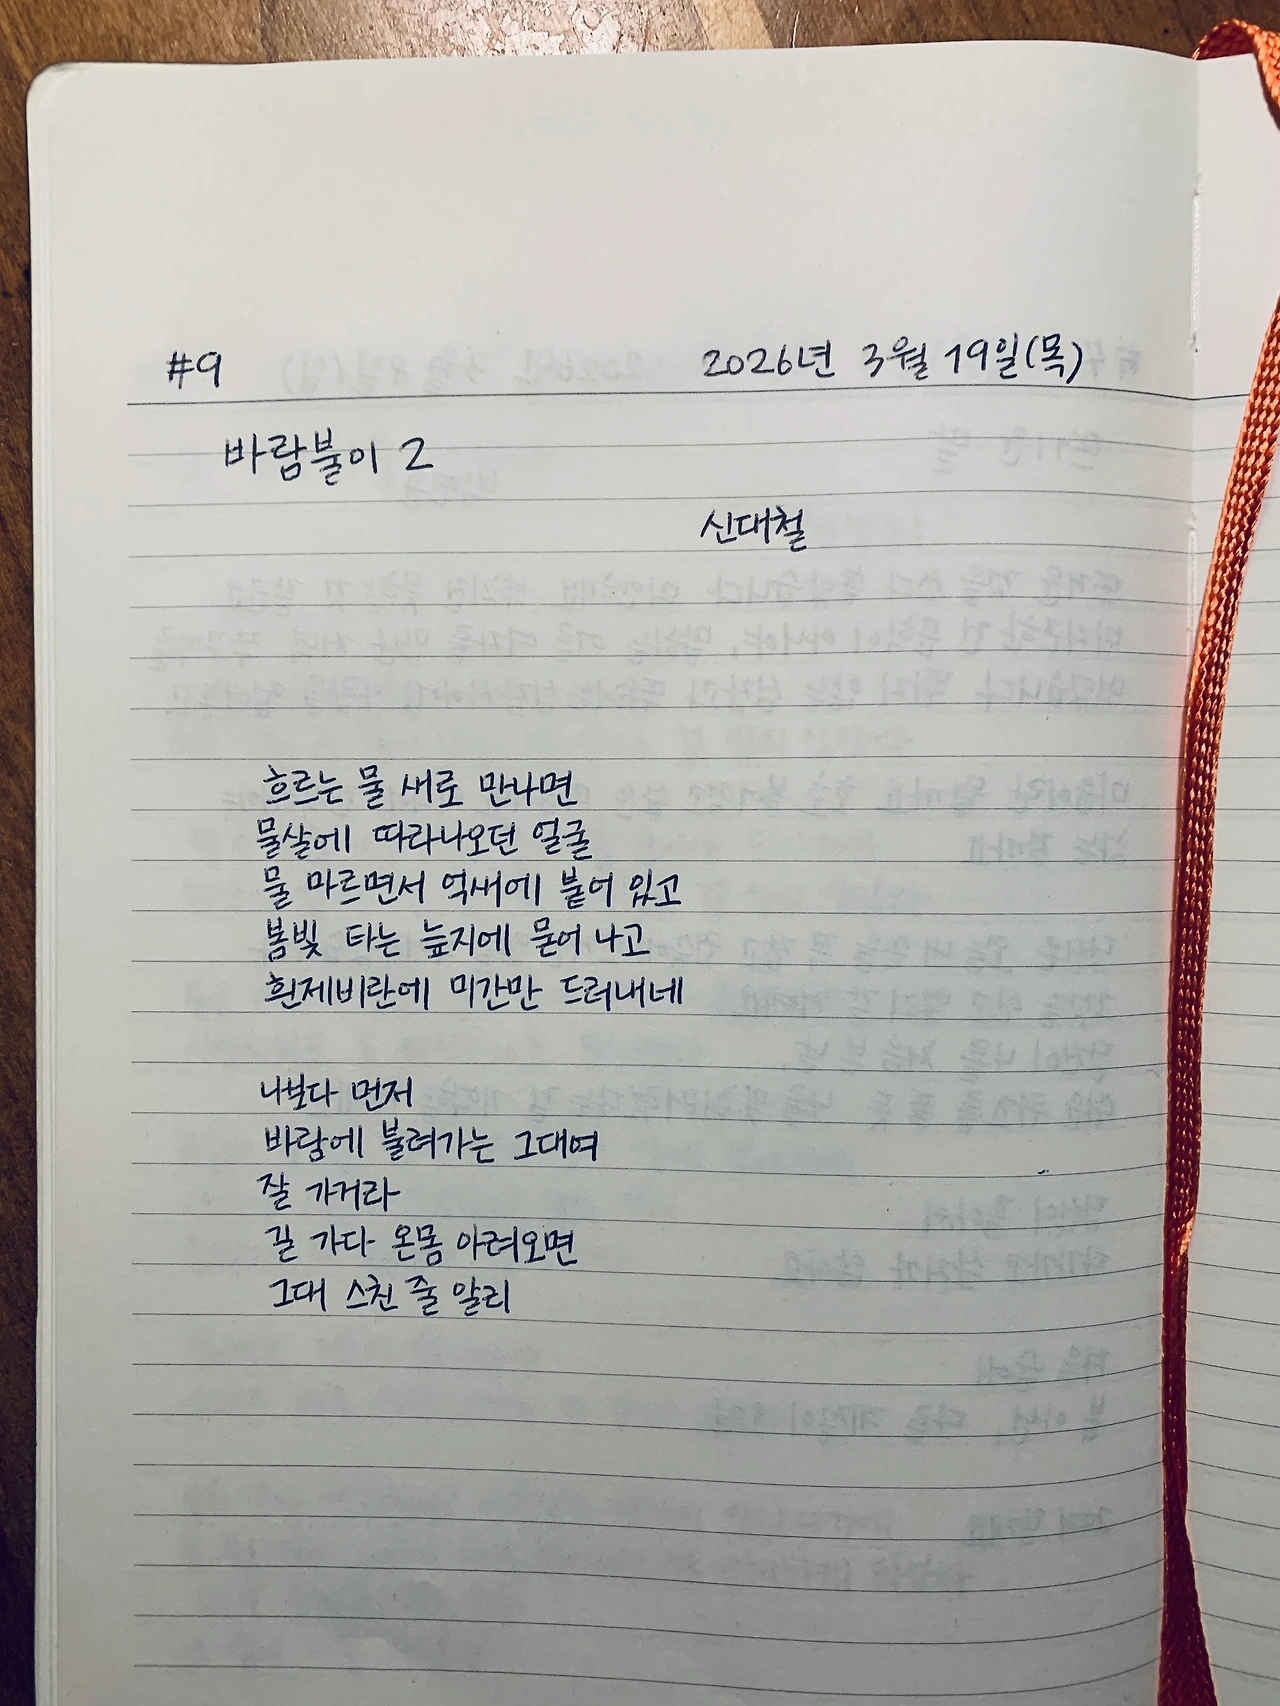 #9 2026년 3월 19일(목)
바람불이 2
신대철
흐르는 물 새로 만나면
물살에 따라나오던 얼굴
물 마르면서 억새에 붙어 있고
봄빛 타는 늪지에 묻어 나고
흰제비란에 미간만 드러내네
나보다 먼저
바람에 불려가는 그대여
잘 가거라
길 가다 온몸 아려오면
그대 스친 줄 알리